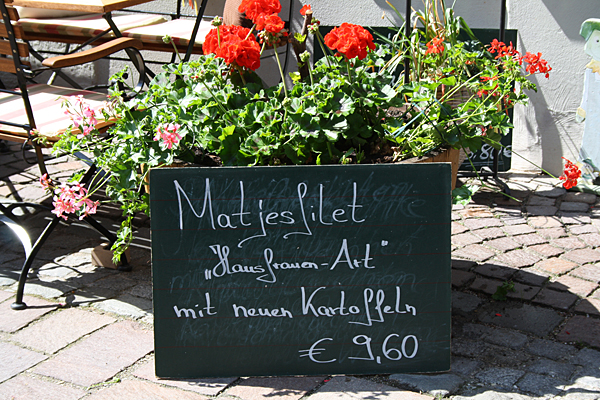 Matjesfilet
„Hausfrauen-Art"
mit neuen Kartoffeln
€ 9,60